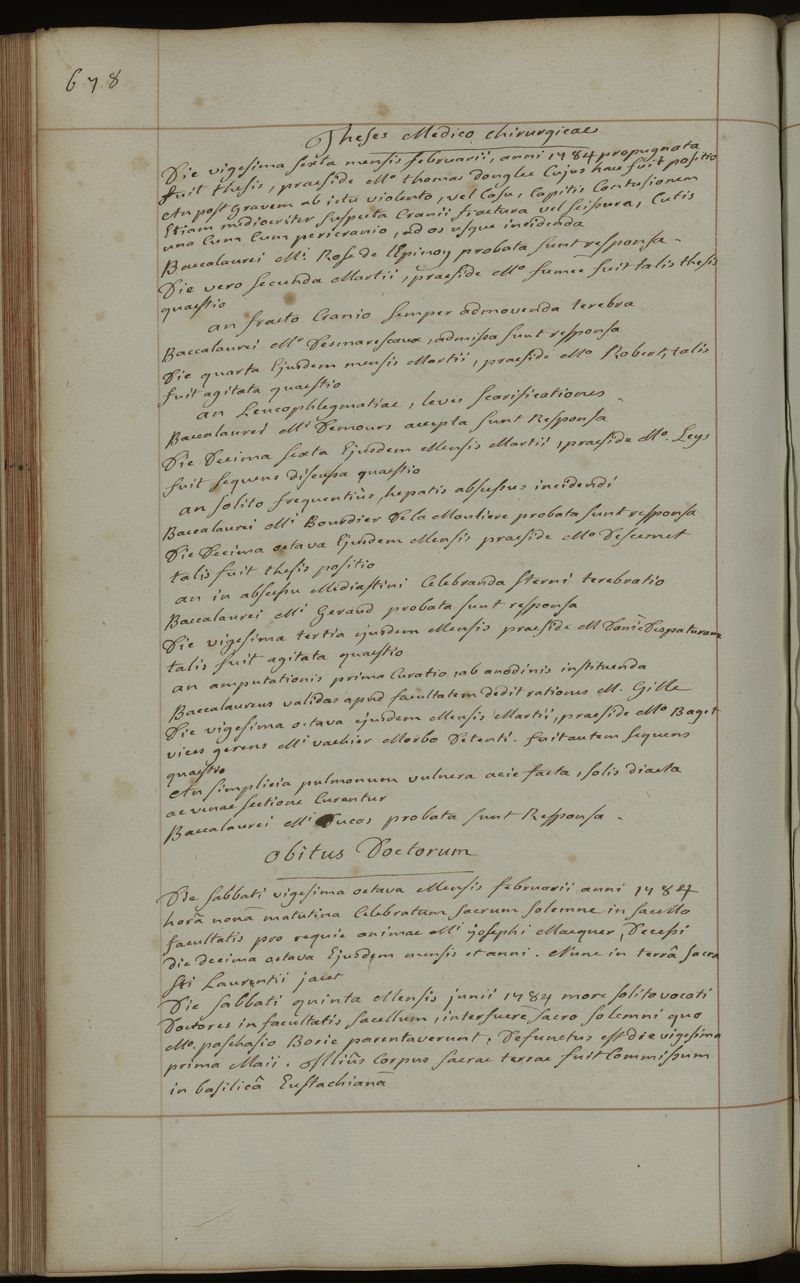 678
Theses Medico chirurgicae
Die vigesima sexta mensis februarii, anni 1784 propugnata
fuit thesis, praeside Mo thomas Donglee Cujus haec fuit positio
An post gravem ab ictu violento, vel Casu, Capitis Contusionem
Etiam mediocriter suspecta Cranii fractura vel scissura, Cutis
una Cum Cum pericranio, ad os usque incidenda
Baccalaurei Mi Rose de lEpinoy probata sunt responsa.
Die vero secunda Martii, praeside Mo fumee fuit talis thesis
quaestio
an fracto Cranio semper admovenda terebra
Baccalaurei Mi Desmarescaux, admissa sunt responsa
Die quarta Ejusdem mensis Martii, praeside Mo Robert, talis
fuit agitata quaestio
an Leucophlegmatiae, leves scarificationes.
Baccalaurei Mi Demours accepta sunt Responsa
Die Decima sexta Ejusdem Mensis Martii, praeside Mo. Leys
fuit sequens discussa quaestio
an solito frequentiùs, hepatis abscessus incidendi
Baccalaurei Mi Bourdier Dela Moutiere probata sunt responsa
Die Decima octava Ejusdem Mensis praeside Mo Descemet
talis fuit thesis positio
an in abscessu Mediastini Celebranda sterni terebratio
Baccalaurei Mi Geraud probata sunt responsa
Die vigesima tertia ejusdem Mensis praeside M Danié Despaturaux
talis fuit agitata quaestio
an amputationis prima Curatio, ab anodinis instituenda
Baccalaureus validas apud facultatem dedit rationes M. Gille
Die vigesima octava ejusdem Mensis Martii, praeside Mo Baget
vices gerens Mi vachier Morbo Detenti. fuit autem sequens
quaestio
An simplicia pulmonum vulnera acie facta, solis diaeta
ac venae sectione Curentur
Baccalaurei Mi Ducos probata sunt Responsa.
Obitus Doctorum
Die sabbati vigesima octava Mensis februarii anni 1784
horâ nonâ matutina Celebratum sacrum solemne in sacello
facultatis pro requie animae Mi josephi Macquer, Decessi
die decima octava Ejusdem mensis et anni. Nunc in terrâ sacra
Sti Laurentii jacet
Die sabbati quinta Mensis junii 1784 more solito vocati
Doctores in facultatis sacellum, interfuere sacro solemni quo
Mo. paschasio Borie parentaverunt, Defunctus est die vigesima
prima Maii. Illiûs Corpus sacrae terrae fuit Commissum
in basilicâ Eustachianâ